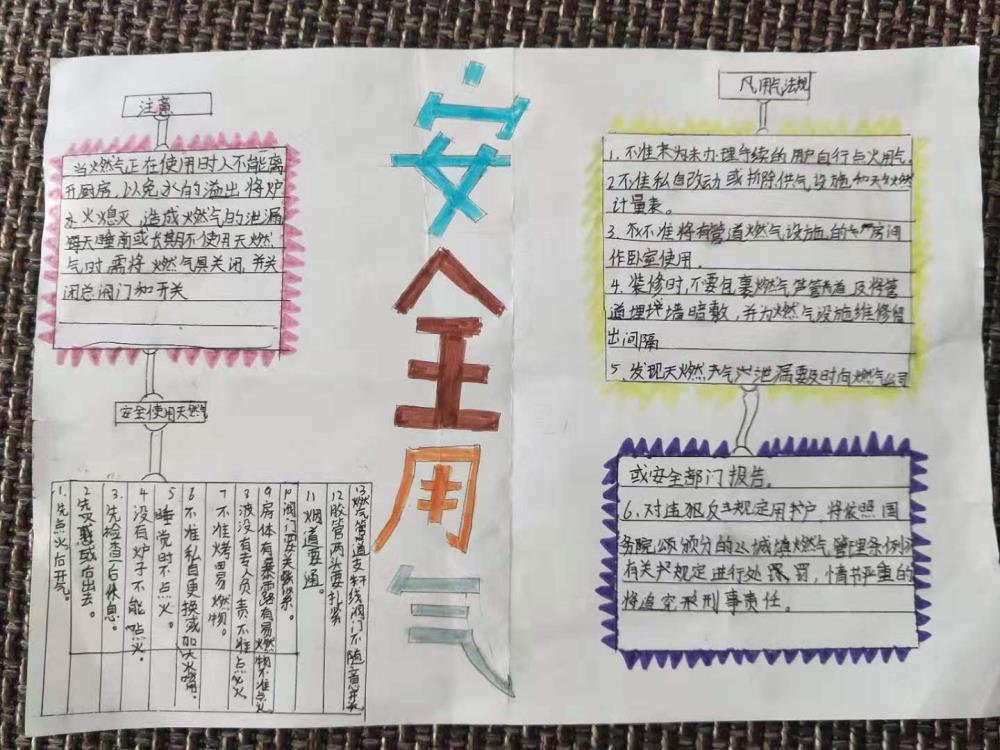 注意
当燃气正在使用时人不能离
开厨房,以免水的溢出将炉
火熄灭,造成燃气的泄漏
每天睡前或长期不使用天燃
气时需将燃气具关闭,并关
闭总阀门和开关
安全使用天然气
1.先点火后开气。
2.先灭憨或后出去。
3.先检查后休息。
4.没有炉子不能点火。
5.睡觉时不点火。
6.不准私自更换或加大
7.不准烤易燃物。
8.没有专人负责不准点火
9.房体有暴露有易燃物不准点火
10.阀门要关
11.烟道要通。
12.胶管两头要扎紧
13.燃气管道支杆线阀门不随意开
安全用气
用气法规
1.不准未为未办理手续的用户自行点火用气.
2.不准私自改动或拆除供气设施和天燃
计量表。
3.不准将有管道燃气设施的房间
作卧室使用.
4.装修时,不要包裹燃气管道及将管
道埋墙暗敷,并为燃气设施维修留
出间隔
5.发现天燃气泄漏要及时向燃气公司
或安全部门报告。
6.对违犯反规定用户,将依照国
务院颂颁分的城填燃气管理条例
有关规定进行处罚,情书严重的
将追究刑事责任。